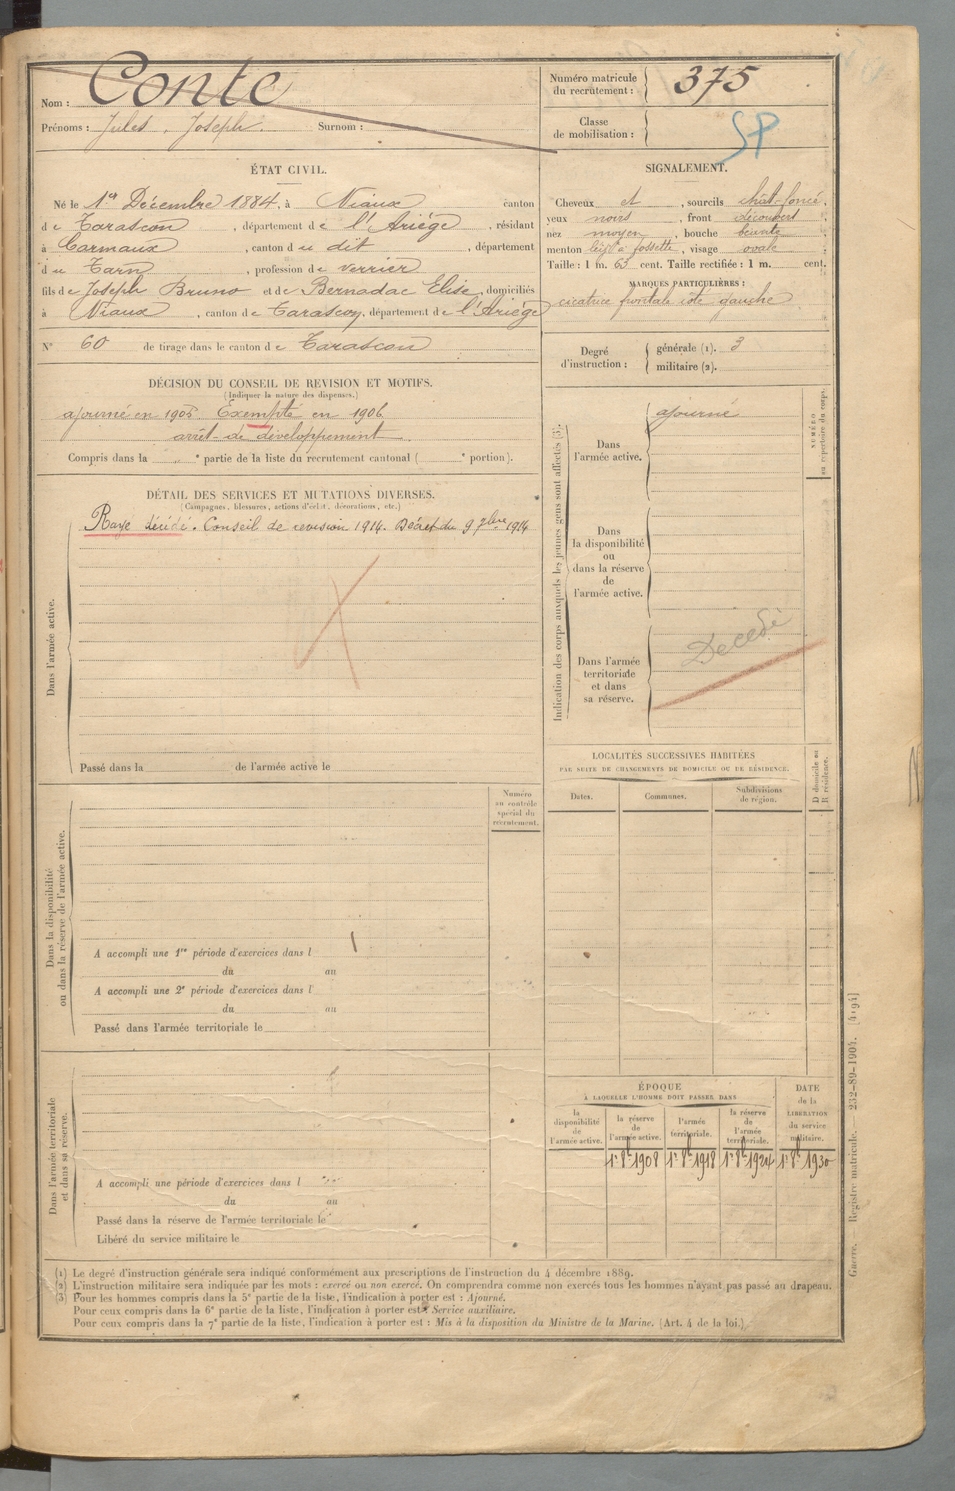 Nom : Conte
Prénoms : Jules, Joseph. Surnom :
Numéro matricule
du recrutement : 375
Classe
de mobilisation :
SP
ÉTAT CIVIL.
Né le 1er Décembre 1884, à Niaux canton
de Tarascon, département de l'Ariége, résidant
à Carmaux, canton du dit, département
du Tarn, profession de verrier
fils de Joseph Bruno et de Bernadac Elise, domiciliés
à Niaux, canton de Tarascon, département de l'Ariége
N° 60 de tirage dans le canton de Tarascon
SIGNALEMENT.
Cheveux et, sourcils chât-foncé,
yeux noirs, front découvert,
nez moyen, bouche béante,
menton lég' à fossette, visage ovale;
Taille : 1 m. 63 cent. Taille rectifiée : 1 m. cent.
MARQUES PARTICULIÈRES :
cicatrice frontale côté gauche
Degré
d'instruction :
générale (1). 3
militaire (2).
DÉCISION DU CONSEIL DE REVISION ET MOTIFS.
(Indiquer la nature des dispenses.)
ajourné en 1905. Exempté en 1906
arrêt de développement
Compris dans la „ e partie de la liste du recrutement cantonal ( e portion).
DÉTAIL DES SERVICES ET MUTATIONS DIVERSES.
(Campagnes, blessures, actions d'éclat, décorations, etc.)
Rayé décédé. Conseil de revision 1914. Décret du 9 7bre 1914
Dans l'armée active.
Passé dans la de l'armée active le
Indication des corps auxquels les jeunes gens sont affectés (3).
NUMÉRO
au répertoire du corps.
Dans
l'armée active.
ajourné
Dans
la disponibilité
ou
dans la réserve
de
l'armée active.
Dans l'armée
territoriale
et dans
sa réserve.
Décédé
LOCALITÉS SUCCESSIVES HABITÉES
PAR SUITE DE CHANGEMENTS DE DOMICILE OU DE RÉSIDENCE.
Dates.
Communes.
Subdivisions
de région.
D domicile ou
R résidence.
Dans la disponibilité
ou dans la réserve de l'armée active.
Numéro
au contrôle
spécial du
recrutement.
A accompli une 1re période d'exercices dans l
du au
A accompli une 2e période d'exercices dans l
du au
Passé dans l'armée territoriale le
Dans l'armée territoriale
et dans sa réserve.
A accompli une période d'exercices dans l
du au
Passé dans la réserve de l'armée territoriale le
Libéré du service militaire le
ÉPOQUE
À LAQUELLE L'HOMME DOIT PASSER DANS
la
disponibilité
de
l'armée active.
la réserve
de
l'armée active.
l'armée
territoriale.
la réserve
de
l'armée
territoriale.
DATE
de la
LIBÉRATION
du service
militaire.
1r 8b 1908 1r 8b 1918 1r 8b 1924 1r 8b 1930
(1) Le degré d'instruction générale sera indiqué conformément aux prescriptions de l'instruction du 4 décembre 1889.
(2) L'instruction militaire sera indiquée par les mots : exercé ou non exercé. On comprendra comme non exercés tous les hommes n'ayant pas passé au drapeau.
(3) Pour les hommes compris dans la 5e partie de la liste, l'indication à porter est : Ajourné.
Pour ceux compris dans la 6e partie de la liste, l'indication à porter est : Service auxiliaire.
Pour ceux compris dans la 7e partie de la liste, l'indication à porter est : Mis à la disposition du Ministre de la Marine. (Art. 4 de la loi.)
Guerre. Registre matricule. — 232-89-1904. [4194]